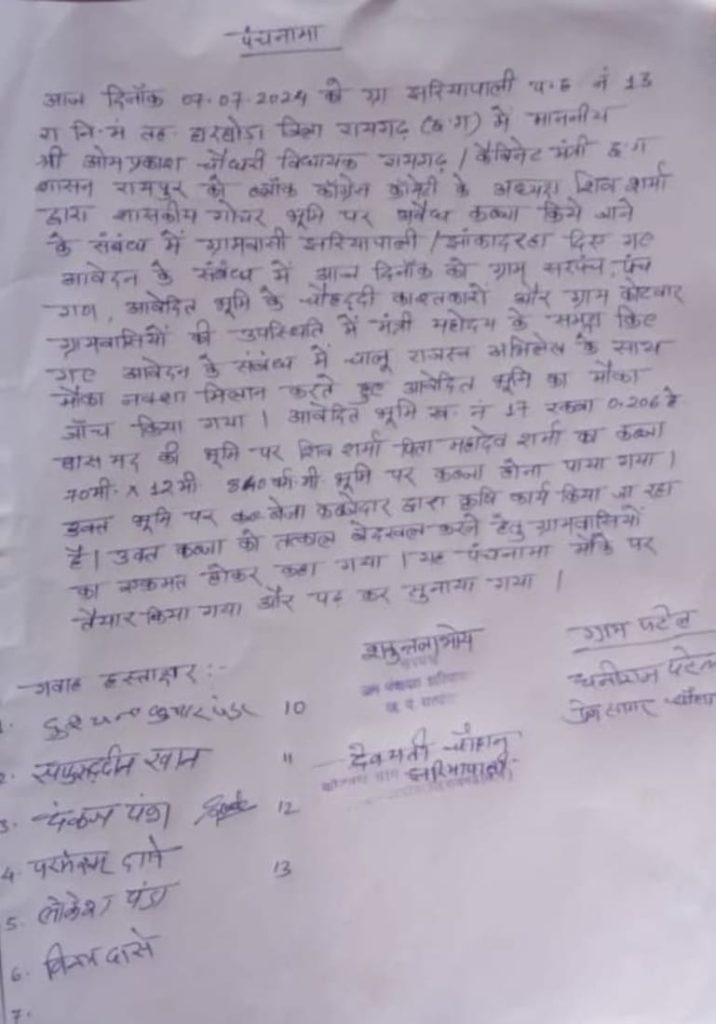 पंचनामा
आज दिनाँक 07.07.2024 को ग्रा झरियापाली प.ह. नं 13
रा.नि.मं तह. जिला रायगढ़ (छ.ग) में माननीय
श्री ओमप्रकाश चौधरी विधायक रायगढ़ / कैबिनेट मंत्री छ.ग
शासन रायपुर को ब्लॉक काँग्रेस कमेटी के अध्यक्ष शिव शर्मा
द्वारा शासकीय गोचर भूमि पर अवैध कब्जा किये जाने
के संबंध में ग्रामवासी झरियापाली / झांकादरहा दिए गए
आवेदन के संबंध में आज दिनाँक को ग्राम सरपंच, पंच
गण, आवेदित भूमि के चौहद्दी काश्तकारो और ग्राम कोटवार
ग्रामवासियों की उपस्थिति में मंत्री महोदय के समक्ष किए
गए आवेदन के संबंध में चालू राजस्व अभिलेख के साथ
मौका नक्शा मिलान करते हुए आवेदित भूमि का मौका
जाँच किया गया । आवेदित भूमि ख. नं 17 रकबा 0.206 हे
घास मद की भूमि पर शिव शर्मा पिता महादेव शर्मा का कब्जा
70मी. X 12मी 840 वर्ग.मी भूमि पर कब्जा होना पाया गया ।
उक्त भूमि पर द्वारा कृषि कार्य किया जा रहा
है । उक्त कब्जा को तत्काल बेदखल करने हेतु ग्रामवासियों
का एकमत होकर कहा गया । यह पंचनामा मौके पर
तैयार किया गया और पढ़ कर सुनाया गया ।
गवाह हस्ताक्षर :-
शकुन्तला भोय
ग्राम पटेल
पटेल
1. कुमार पंडा 10
2. खान 11
देवमती चौहान
झरियापाली
3. पंकज पंडा 12
4. परमेश्वर दासे 13
5. लोकेश पंडा
6. दासे
7.